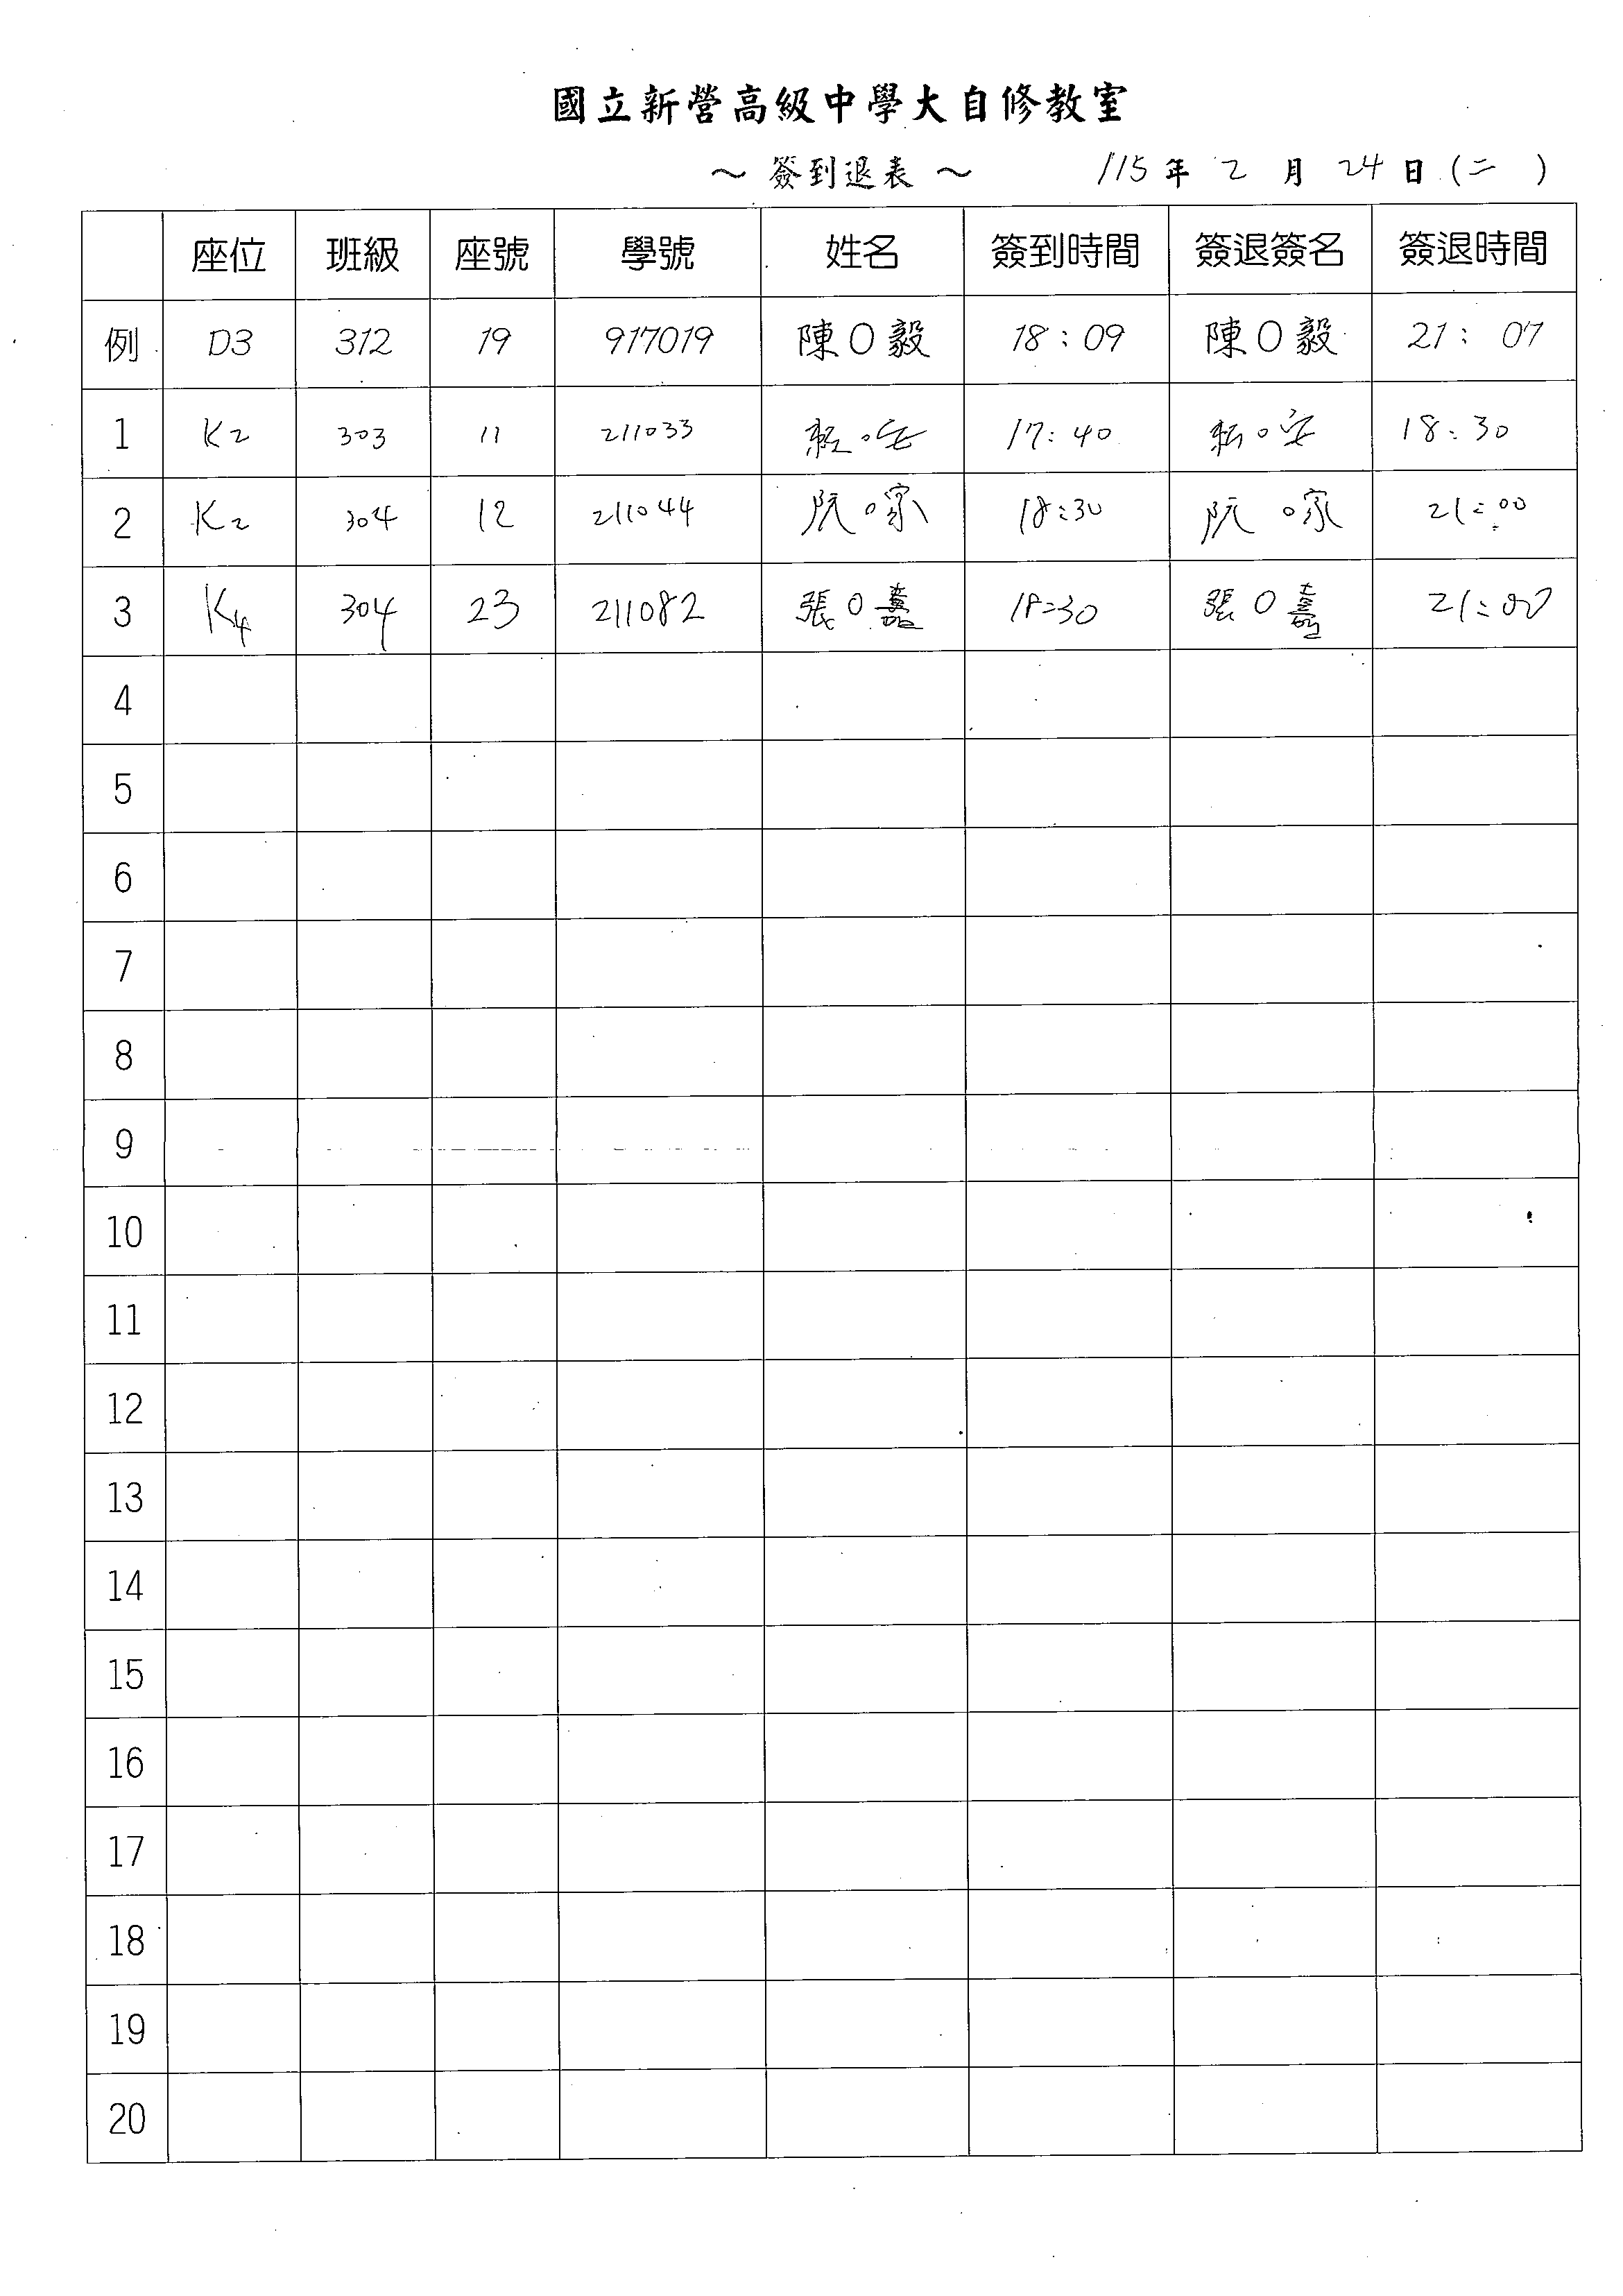 國立新營高級中學大自修教室
～ 簽到退表 ～ 115 年 2 月 24 日 (二 )
座位 班級 座號 學號 姓名 簽到時間 簽退簽名 簽退時間
例 D3 312 19 917019 陳O毅 18:09 陳O毅 21: 07
1 K2 303 11 211033 17:40 18:30
2 K2 304 12 211044 阮O家 18:30 阮O家 21:00
3 K4 304 23 211082 張O 18:30 張O 21:00
4
5
6
7
8
9
10
11
12
13
14
15
16
17
18
19
20